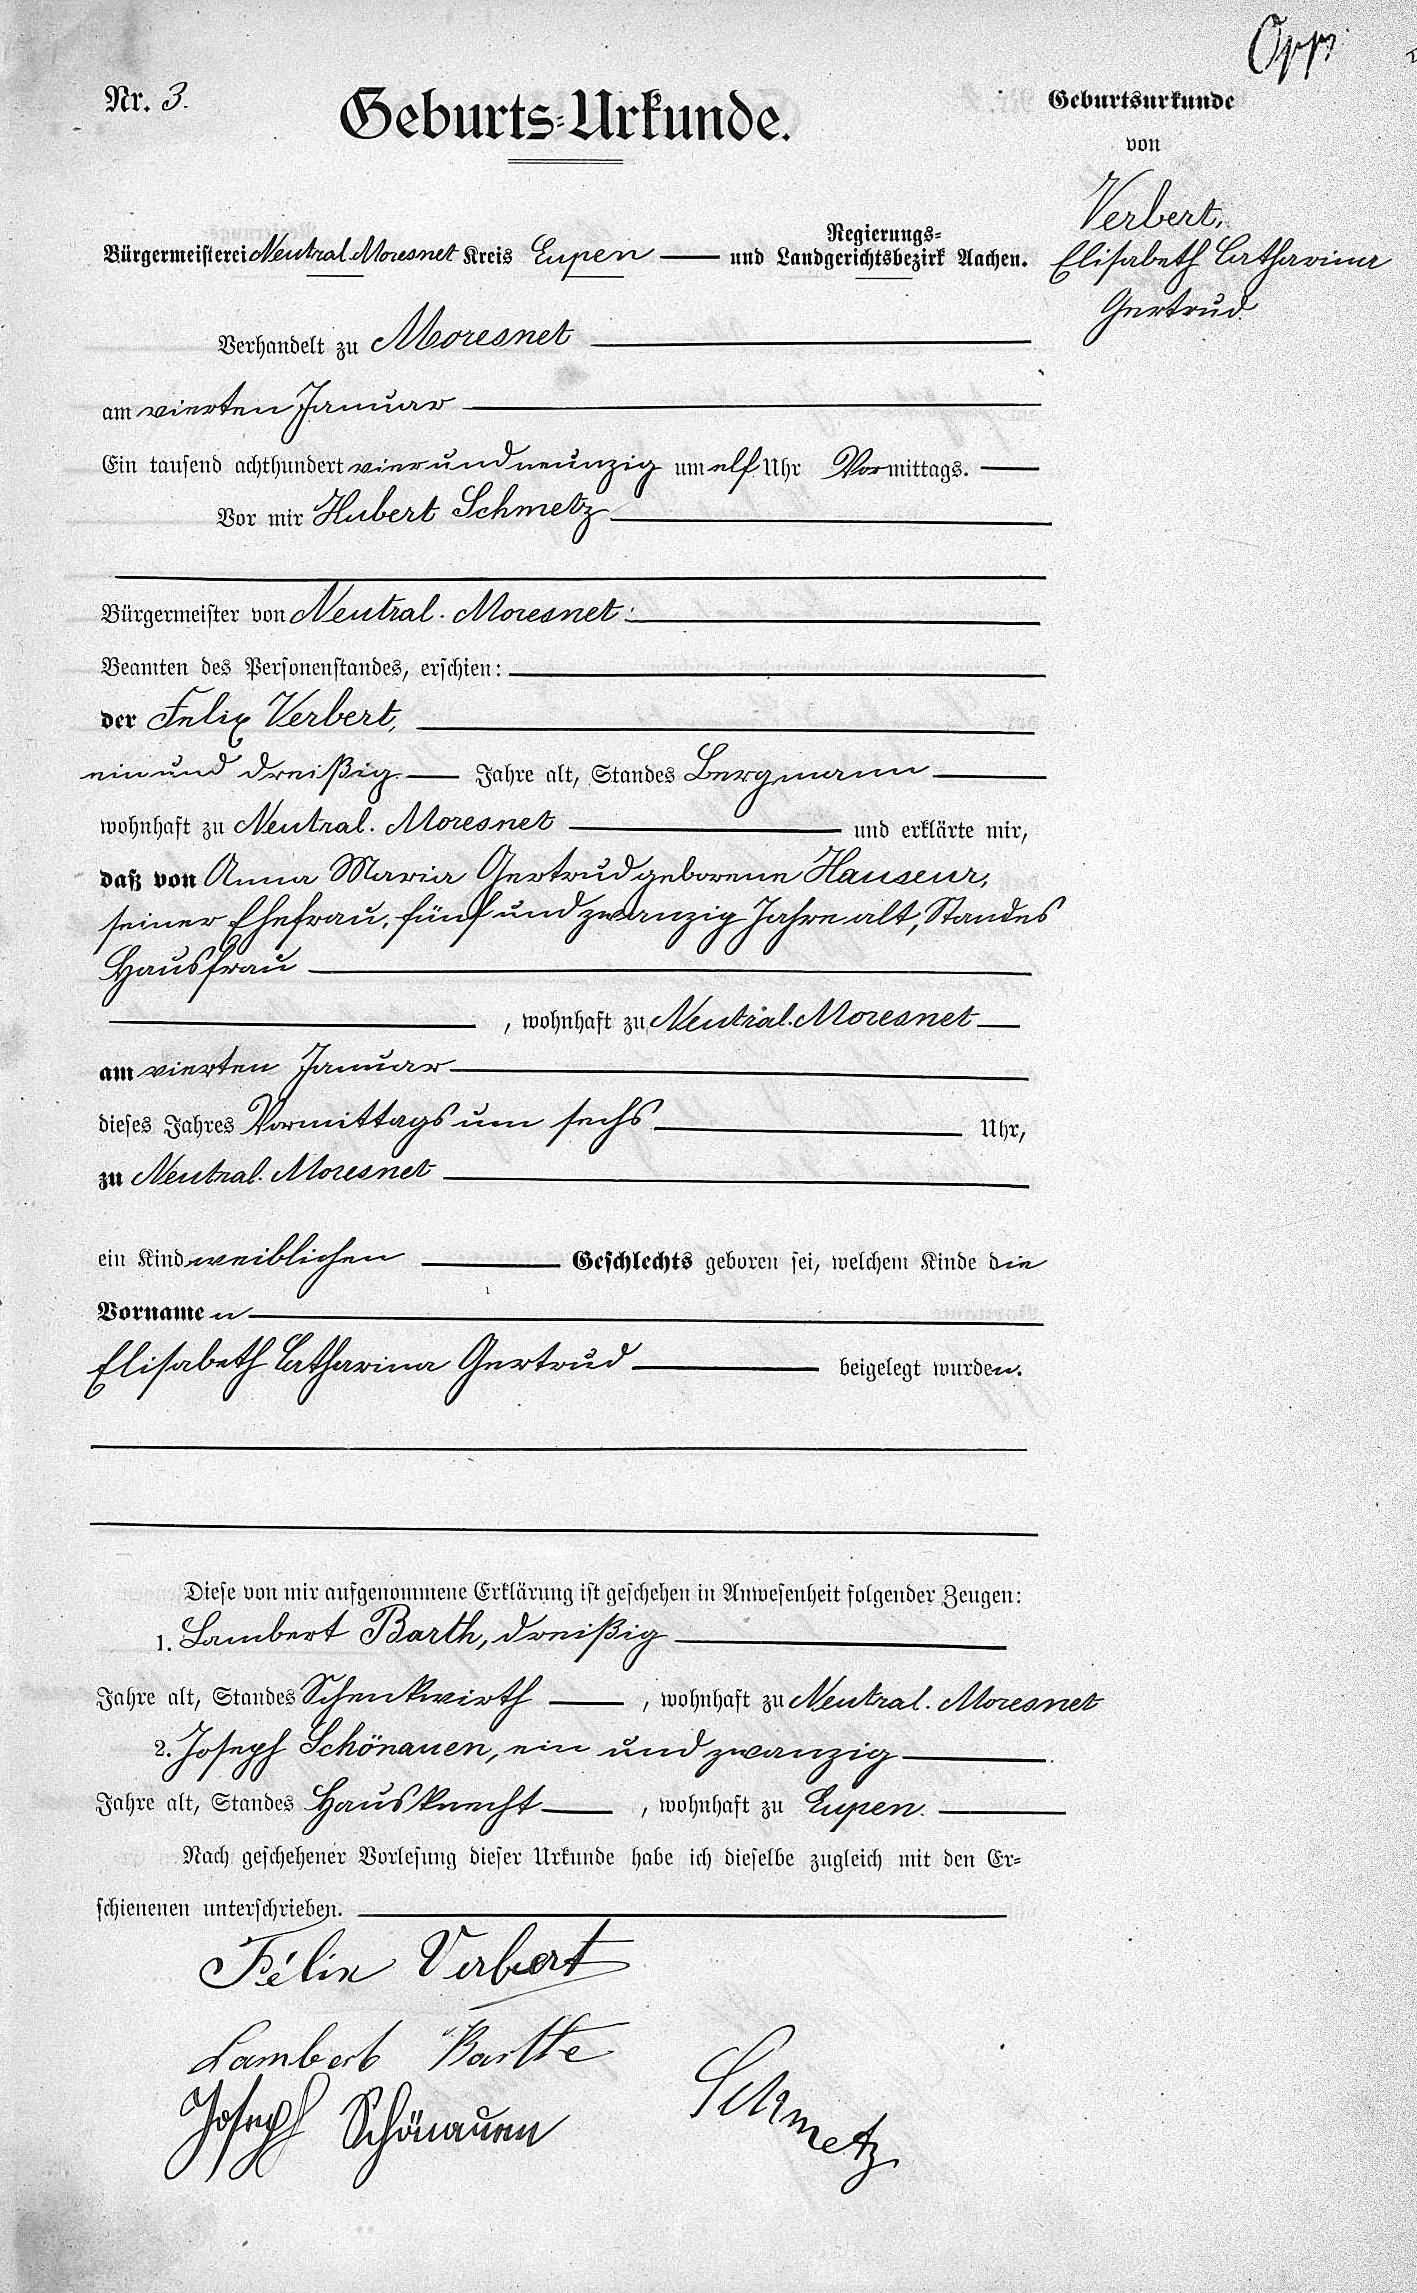 Nr. 3.
Geburts-Urkunde.
Bürgermeisterei Neutral. Moresnet Kreis Eupen
Regierungs-
und Landgerichtsbezirk Aachen.
Geburtsurkunde
von
Verbert,
Elisabeth Catharina
Gertrud
Verhandelt zu Moresnet
am vierten Januar
Ein tausend achthundert vierundneunzig um elf Uhr Vormittags.
Vor mir Hubert Schmetz
Bürgermeister von Neutral. Moresnet
Beamten des Personenstandes, erschien:
der Felix Verbert,
ein und dreißig Jahre alt, Standes Bergmann
wohnhaft zu Neutral. Moresnet und erklärte mir,
daß von Anna Maria Gertrud geborene Hauseur,
seiner Ehefrau, fünf und zwanzig Jahre alt, Standes
Hausfrau
, wohnhaft zu Neutral. Moresnet
am vierten Januar
dieses Jahres Vormittags um sechs Uhr,
zu Neutral. Moresnet
ein Kind weiblichen Geschlechts geboren sei, welchem Kinde die
Vornamen
Elisabeth Catharina Gertrud beigelegt wurden.
Diese von mir aufgenommene Erklärung ist geschehen in Anwesenheit folgender Zeugen:
1. Lambert Barth, dreißig
Jahre alt, Standes Schenkwirth , wohnhaft zu Neutral. Moresnet
2. Joseph Schönauen, ein und zwanzig
Jahre alt, Standes Hausknecht , wohnhaft zu Eupen.
Nach geschehener Vorlesung dieser Urkunde habe ich dieselbe zugleich mit den Er-
schienenen unterschrieben.
Félix Verbert
Lambert Barthe
Joseph Schönauen
Schmetz